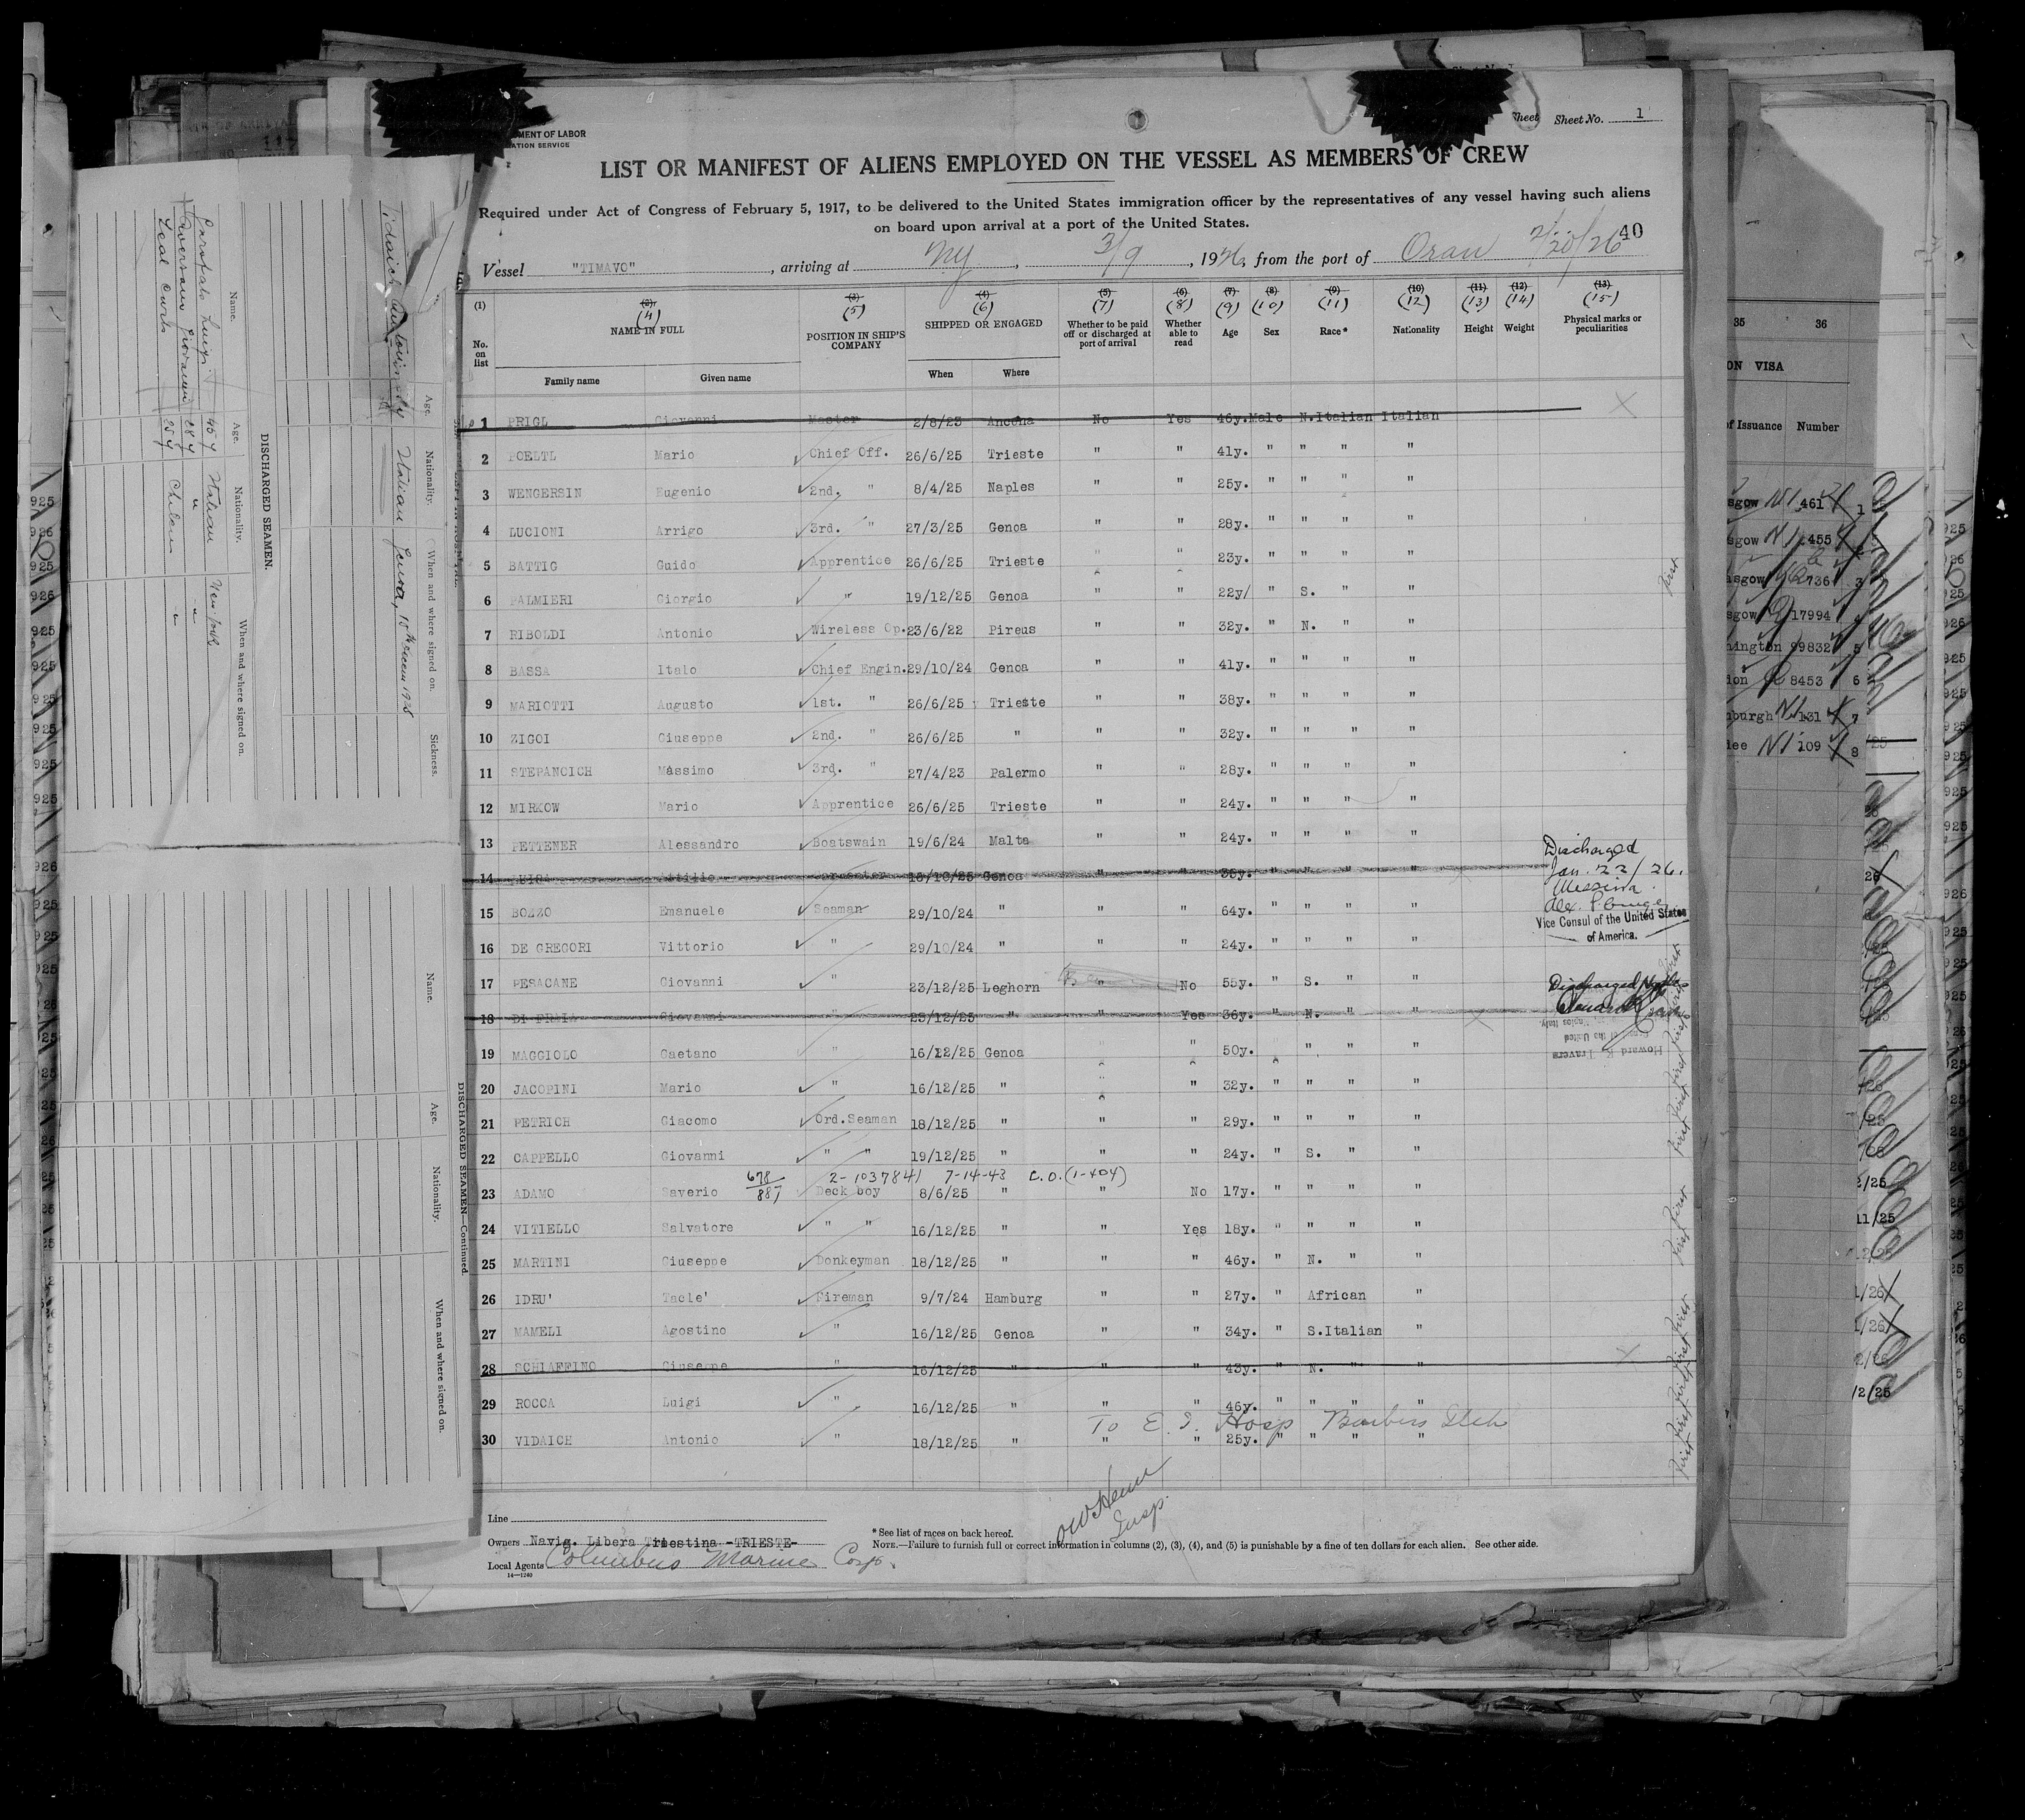 MENT OF LABOR
ATION SERVICE
Sheet Sheet No. 1
LIST OR MANIFEST OF ALIENS EMPLOYED ON THE VESSEL AS MEMBERS OF CREW
Required under Act of Congress of February 5, 1917, to be delivered to the United States immigration officer by the representatives of any vessel having such aliens
on board upon arrival at a port of the United States.
40
Vessel "TIMAVO", arriving at NY, 3/9, 1926, from the port of Oran 2/20/26
(1) (2) (3) (4) (5) (6) (7) (8) (9) (10) (11) (12) (13)
(4) (5) (6) (7) (8) (9) (10) (11) (12) (13) (14) (15)
No. on list NAME IN FULL POSITION IN SHIP'S COMPANY SHIPPED OR ENGAGED Whether to be paid off or discharged at port of arrival Whether able to read Age Sex Race* Nationality Height Weight Physical marks or peculiarities
Family name Given name When Where
1 PRIGL Giovanni Master 2/8/23 Ancona No Yes 46y. Male N.Italian Italian
2 POELTL Mario Chief Off. 26/6/25 Trieste " " 41y. " " " "
3 WENGERSIN Eugenio 2nd. " 8/4/25 Naples " " 25y. " " " "
4 LUCIONI Arrigo 3rd. " 27/3/25 Genoa " " 28y. " " " "
5 BATTIG Guido Apprentice 26/6/25 Trieste " " 23y. " " " "
6 PALMIERI Giorgio " 19/12/25 Genoa " " 22y/ " S. " "
7 RIBOLDI Antonio Wireless Op. 23/6/22 Pireus " " 32y. " N. " "
8 BASSA Italo Chief Engin. 29/10/24 Genoa " " 41y. " " " "
9 MARIOTTI Augusto 1st. " 26/6/25 Trieste " " 38y. " " " "
10 ZIGOI Giuseppe 2nd. " 26/6/25 " " " 32y. " " " "
11 STEPANCICH Massimo 3rd. " 27/4/23 Palermo " " 28y. " " " "
12 MIRKOW Mario Apprentice 26/6/25 Trieste " " 24y. " " " "
13 PETTENER Alessandro Boatswain 19/6/24 Malta " " 24y. " " " "
14 Attilio Carpenter 18/10/25 Genoa " " " " " "
Discharged
Jan. 22/26.
Messina.
Vice Consul of the United States
of America.
15 BOZZO Emanuele Seaman 29/10/24 " " " 64y. " " " "
16 DE GREGORI Vittorio " 29/10/24 " " " 24y. " " " "
17 PESACANE Giovanni " 23/12/25 Leghorn " No 55y. " S. " "
Discharged Naples
18 Giovanni " 23/12/25 " " Yes 36y. " N. " "
19 MAGGIOLO Gaetano " 16/12/25 Genoa " " 50y. " " " "
Howard Travers
20 JACOPINI Mario " 16/12/25 " " " 32y. " " " "
21 PETRICH Giacomo Ord.Seaman 18/12/25 " " " 29y. " " " "
22 CAPPELLO Giovanni " " 19/12/25 " " " 24y. " S. " "
678/887 2-1037841 7-14-43 C.O.(1-404)
23 ADAMO Saverio Deck boy 8/6/25 " " No 17y. " " " "
24 VITIELLO Salvatore " " 16/12/25 " " Yes 18y. " " " "
25 MARTINI Giuseppe Donkeyman 18/12/25 " " " 46y. " N. " "
26 IDRU' Tacle' Fireman 9/7/24 Hamburg " " 27y. " African "
27 MAMELI Agostino " 16/12/25 Genoa " " 34y. " S.Italian "
28 SCHIAFFINO Giuseppe " 16/12/25 " " " 43y. " N. " "
29 ROCCA Luigi " 16/12/25 " " " 46y. " " " "
To E. I. Hosp Barbers Itch
30 VIDAICH Antonio " 18/12/25 " " " 25y. " " " "
Line
Owners Navig. Libera Triestina -TRIESTE-
Local Agents Columbus Marine Corp.
14—1240
* See list of races on back hereof.
NOTE.—Failure to furnish full or correct information in columns (2), (3), (4), and (5) is punishable by a fine of ten dollars for each alien. See other side.
Insp.
Name. Age. Nationality. When and where signed on. Sickness.
Vidaich Antonio 25y Italian Genoa, 18th Decem 1925
DISCHARGED SEAMEN.
Name. Age. Nationality. When and where signed on.
Garofalo Luigi 45y Italian New York
Giovanni 28y " "
Leal Curto 25y Chilean "
DISCHARGED SEAMEN—Continued.
Name. Age. Nationality. When and where signed on.
35 36
ON VISA
of Issuance Number
sgow 461 1
sgow 455 2
asgow 736 3
sgow 17994 4
hington 99832 5
ion 8453 6
nburgh 131 7
dee 109 8